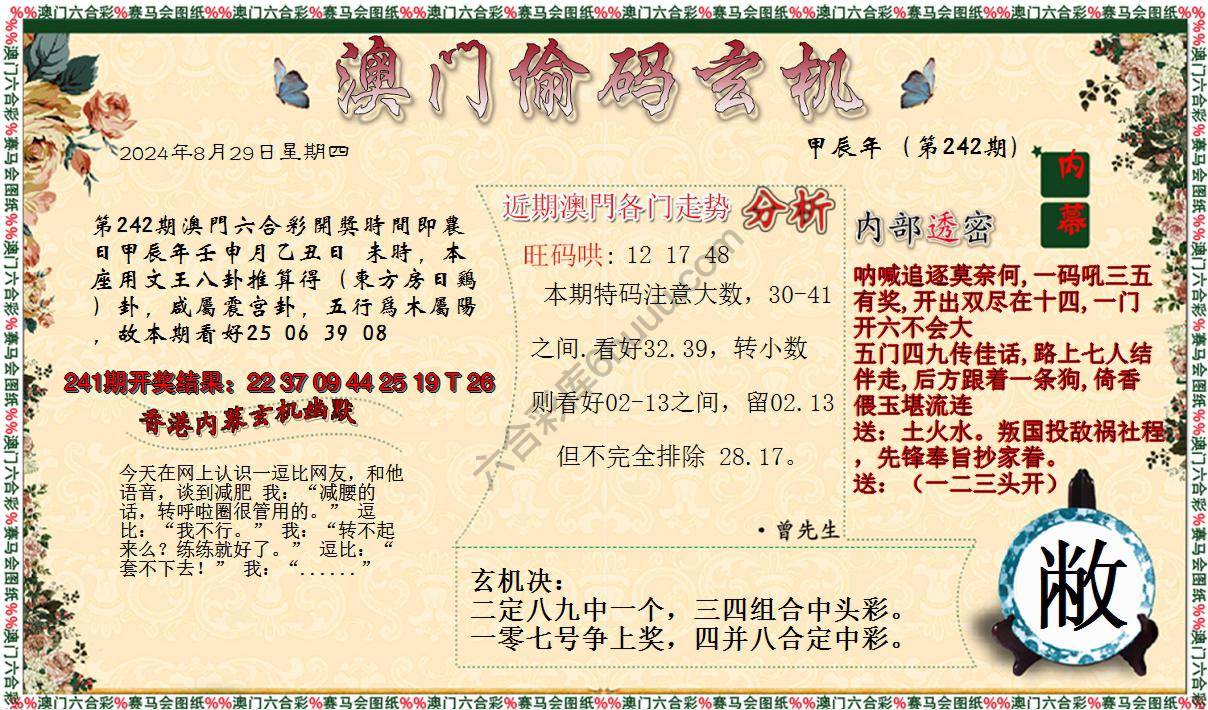 %%澳门六合彩%赛马会图纸%%澳门六合彩%赛马会图纸%%澳门六合彩%赛马会图纸%%澳门六合彩%赛马会图纸%%澳门六合彩%赛马会图纸
澳门偷码玄机
2024年8月29日星期四
甲辰年（第242期）
内幕
第242期澳門六合彩開獎時間即農
日甲辰年壬申月乙丑日 未時，本
座用文王八卦推算得（東方房日鷄
）卦，咸屬震宫卦，五行爲木屬陽
，故本期看好25 06 39 08
241期开奖结果：22 37 09 44 25 19 T 26
香港内幕玄机幽默
今天在网上认识一逗比网友，和他
语音，谈到减肥 我：“减腰的
话，转呼啦圈很管用的。” 逗
比：“我不行。” 我：“转不起
来么？练练就好了。” 逗比：“
套不下去！” 我：“......”
近期澳門各门走势 分析
旺码哄: 12 17 48
本期特码注意大数，30-41
之间.看好32.39，转小数
则看好02-13之间，留02.13
但不完全排除 28.17。
·曾先生
内部透密
呐喊追逐莫奈何,一码吼三五
有奖,开出双尽在十四,一门
开六不会大
五门四九传佳话,路上七人结
伴走,后方跟着一条狗,倚香
偎玉堪流连
送：土火水。叛国投敌祸社程
，先锋奉旨抄家眷。
送：（一二三头开）
玄机决：
二定八九中一个，三四组合中头彩。
一零七号争上奖，四并八合定中彩。
敝
%%澳门六合彩%赛马会图纸%%澳门六合彩%赛马会图纸%%澳门六合彩%赛马会图纸%%澳门六合彩%赛马会图纸%%澳门六合彩%赛马会图纸